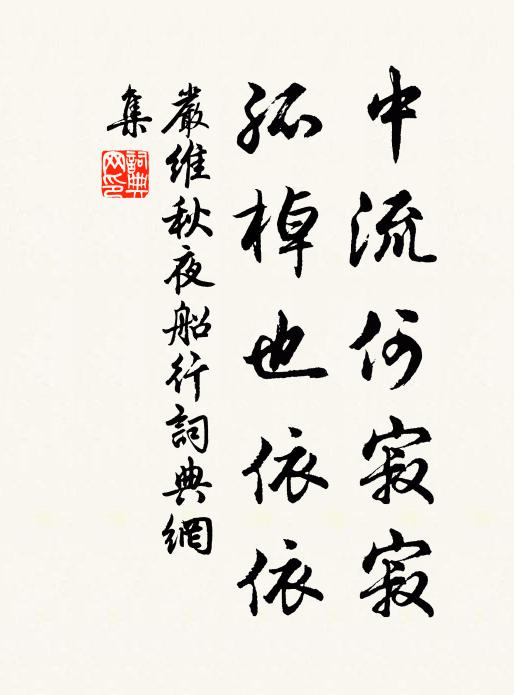 中流何寂寂
孤棹也依依
嚴維秋夜船行詞典網
集
詞典
网印